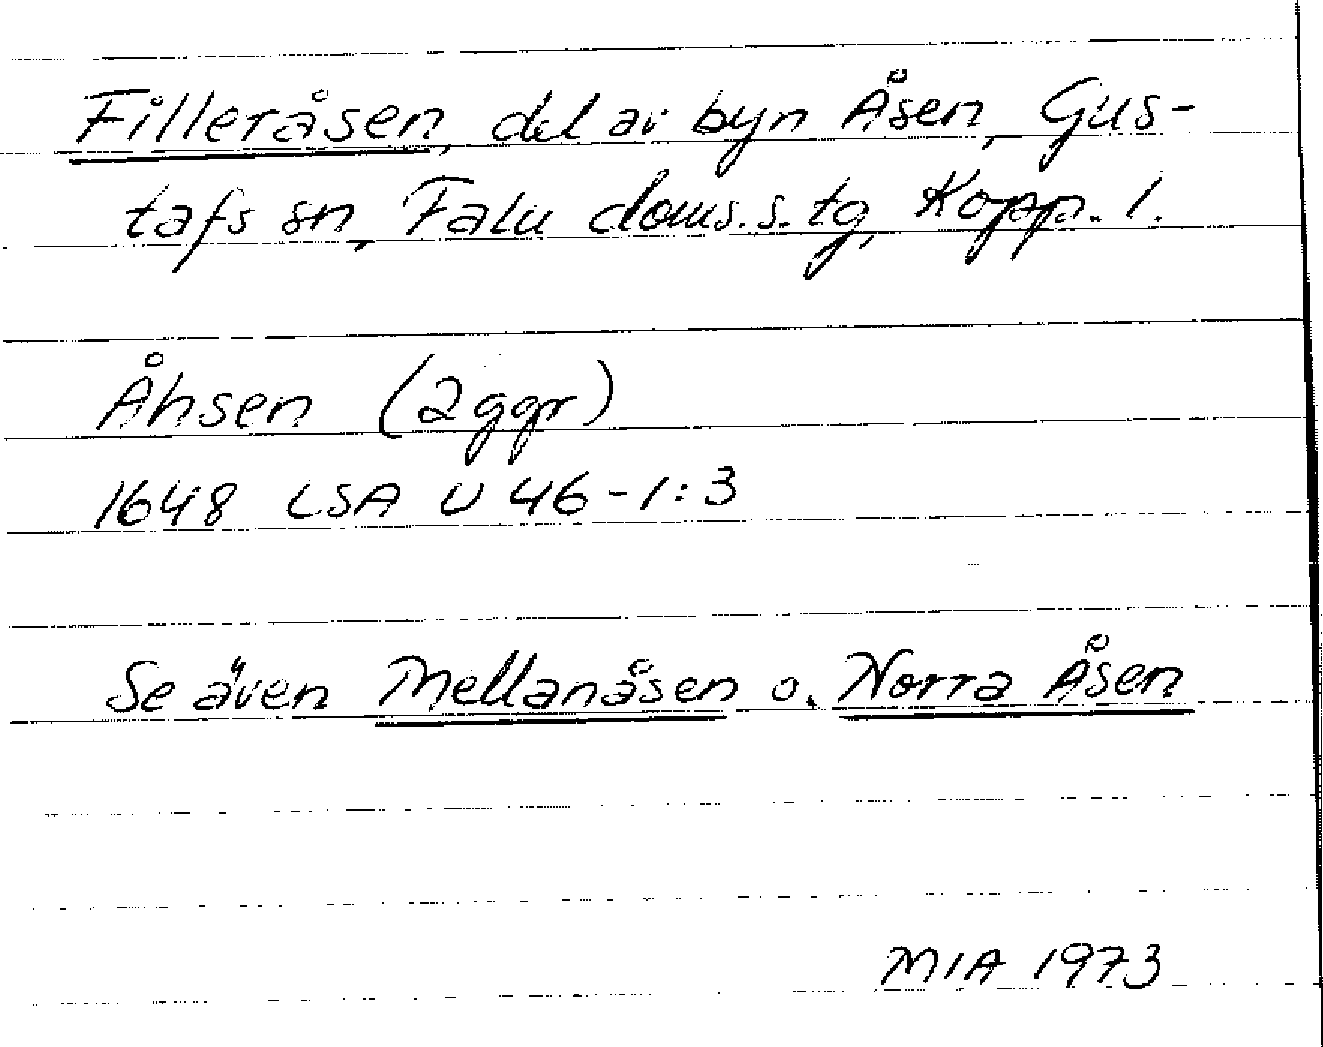 Filleråsen, del av byn Åsen, Gus-
tafs sn, Falu doms.s. tg, Kopp. l.
Åhsen (2 ggr)
1648 LSA U 46-1:3
Se även Mellanåsen o. Norra Åsen
MIA 1973